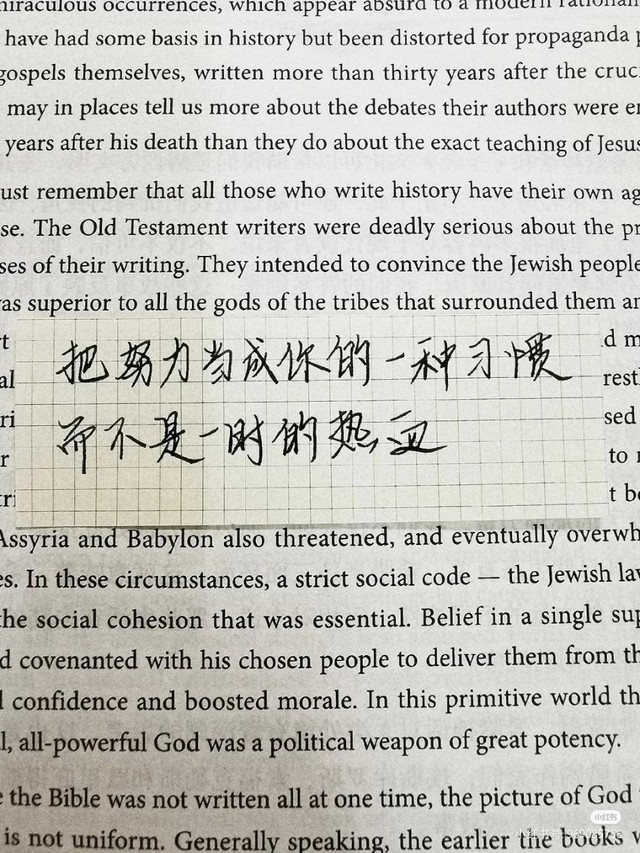 miraculous occurrences, which appear absurd to a modern rational
have had some basis in history but been distorted for propaganda p
gospels themselves, written more than thirty years after the cruc
may in places tell us more about the debates their authors were e
years after his death than they do about the exact teaching of Jesus
ust remember that all those who write history have their own ag
se. The Old Testament writers were deadly serious about the pr
ses of their writing. They intended to convince the Jewish people
was superior to all the gods of the tribes that surrounded them an
rt
d m
把努力当成你的一种习惯
al
rest
ri
sed
而不是一时的热血
r
to
tri
t b
Assyria and Babylon also threatened, and eventually overwh
es. In these circumstances, a strict social code — the Jewish law
the social cohesion that was essential. Belief in a single sup
d covenanted with his chosen people to deliver them from th
l confidence and boosted morale. In this primitive world th
l, all-powerful God was a political weapon of great potency.
e the Bible was not written all at one time, the picture of God
is not uniform. Generally speaking, the earlier the books w
小红书